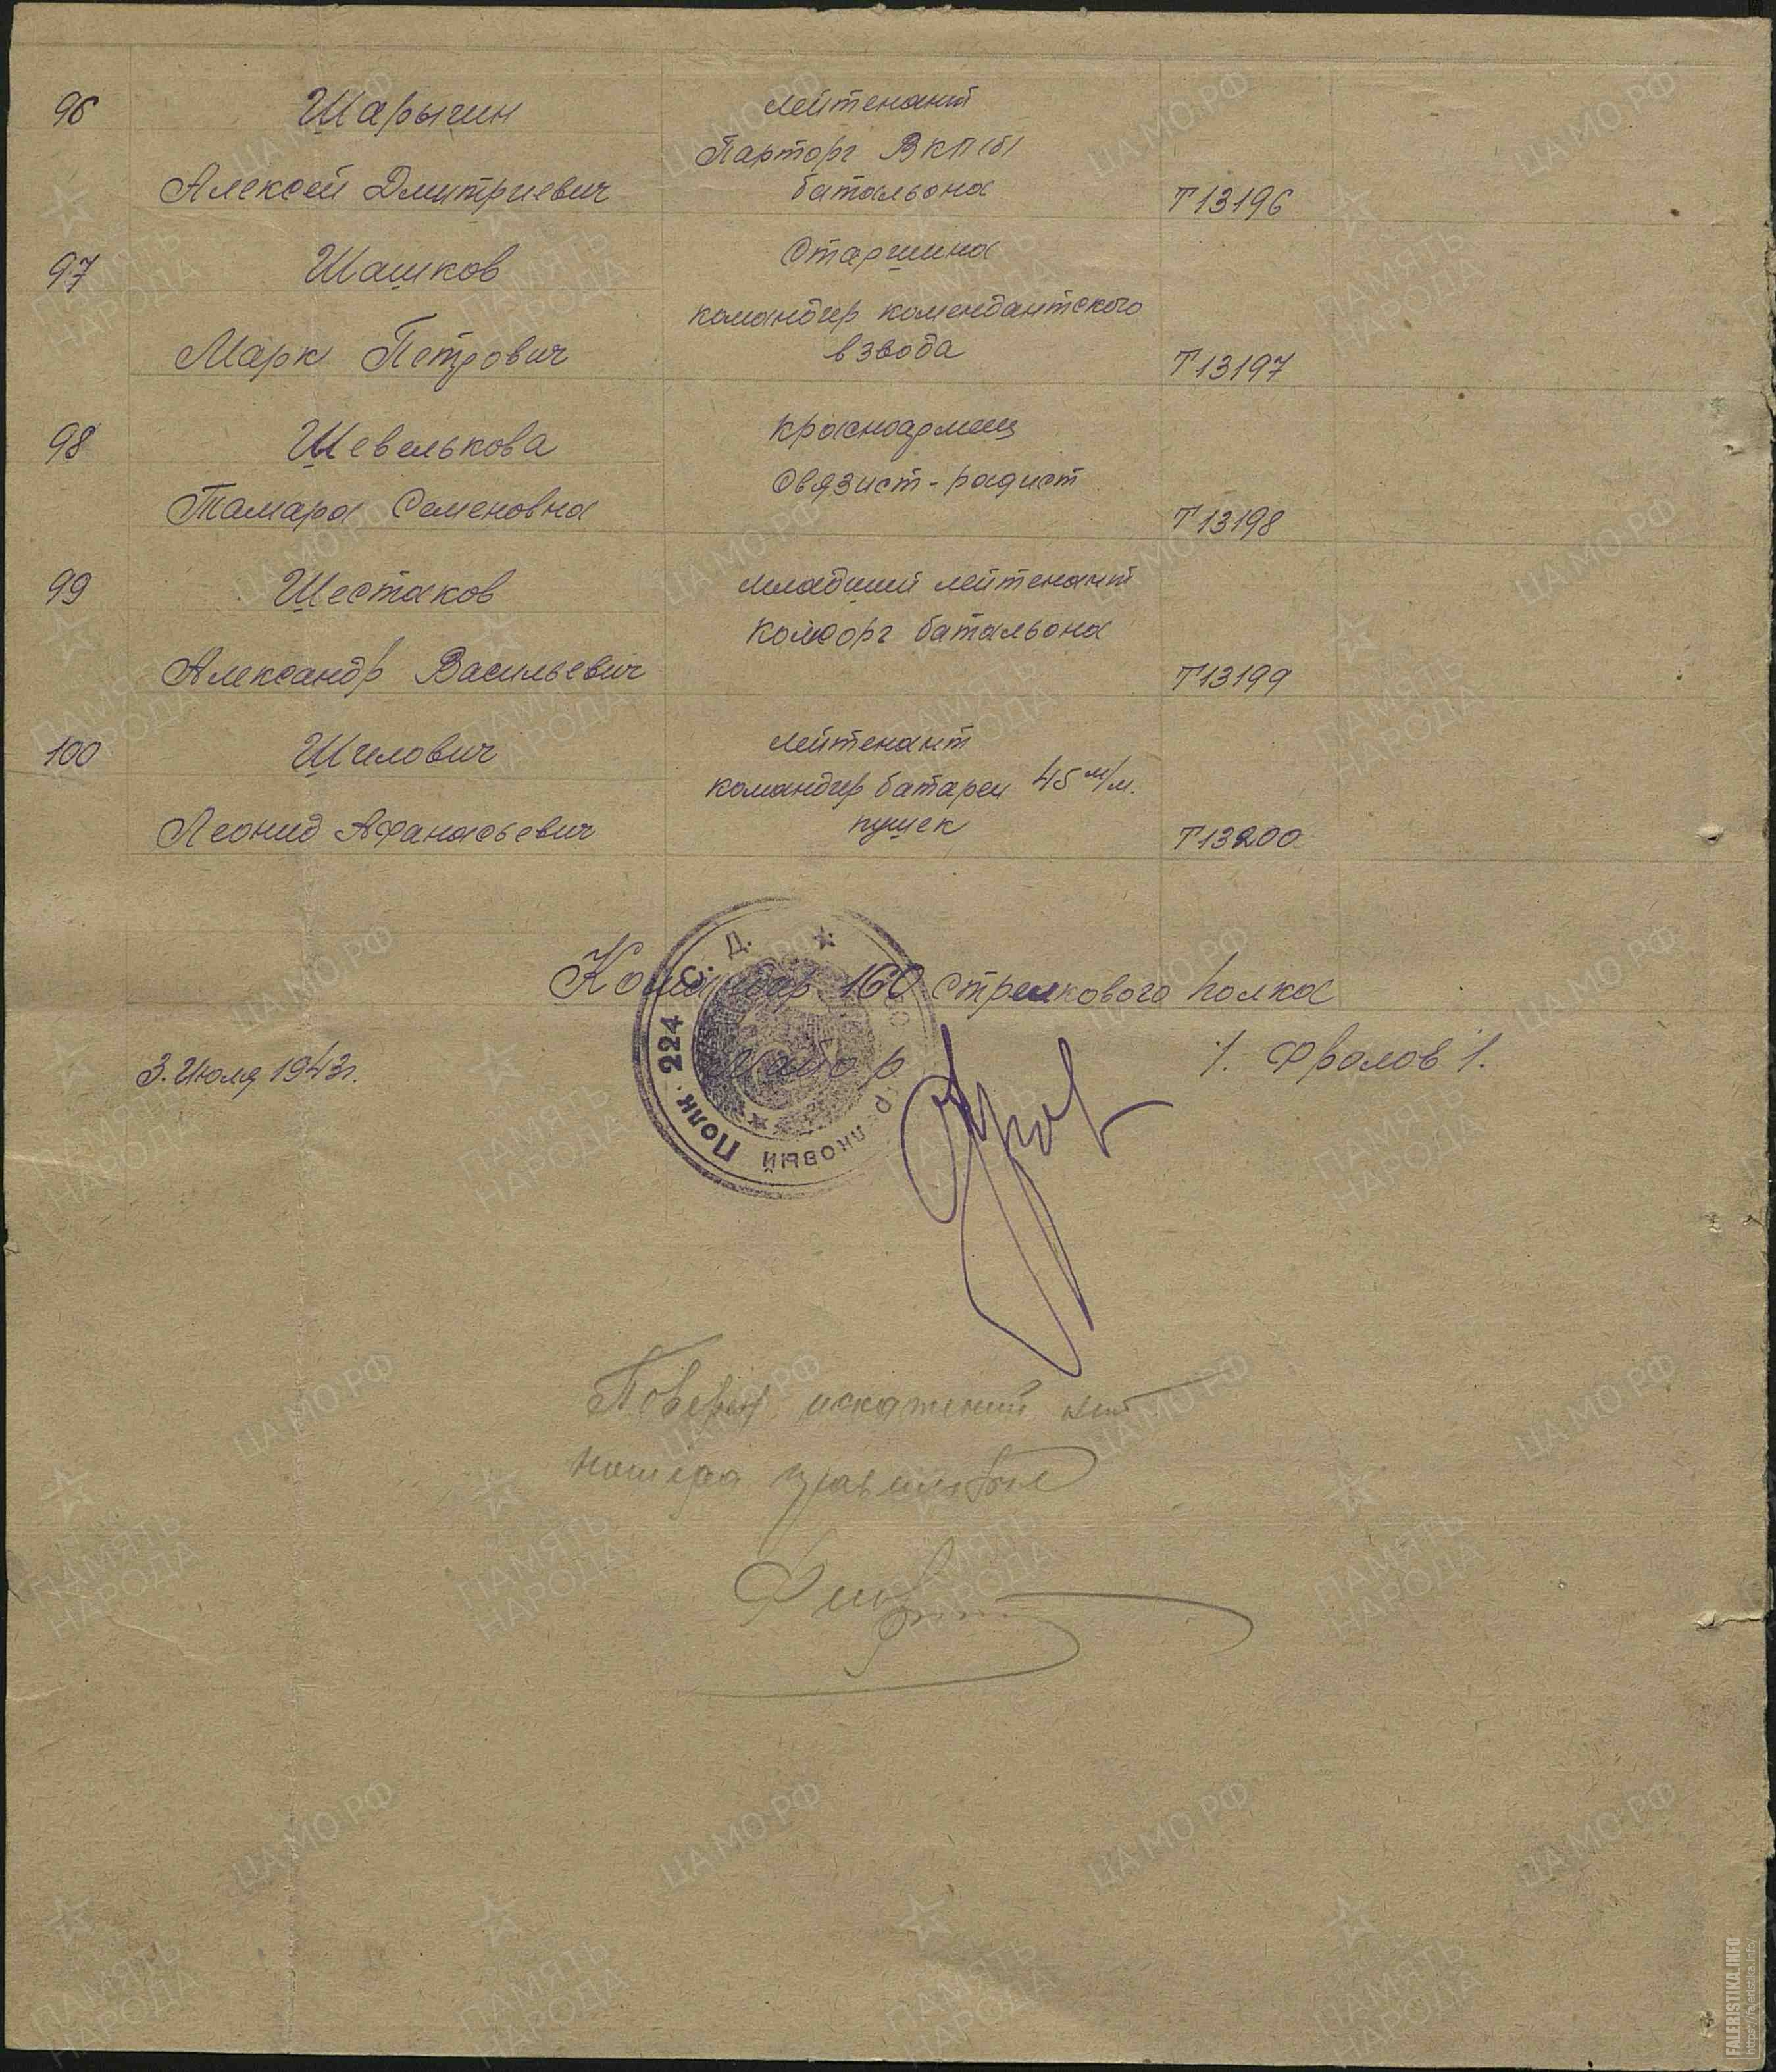 96 Шарыгин лейтенант
Парторг ВКП(б)
Алексей Дмитриевич батальона Т13196
97 Шашков Старшина
командир комендантского
Марк Петрович взвода Т13197
98 Шевелькова красноармеец
Связист-радист
Тамара Семеновна Т13198
99 Шестаков младший лейтенант
Комсорг батальона
Александр Васильевич Т13199
100 Шилович лейтенант
командир батареи 45 м/м.
Леонид Афанасьевич пушек Т13200
Командир 160 Стрелкового полка
3. Июля 1943г. майор /. Фролов /.
Полк. 224 С. Д.
искажений нет
номера правильные
ЦАМО.РФ
ПАМЯТЬ
НАРОДА
FALERISTIKA.INFO
https://faleristika.info/